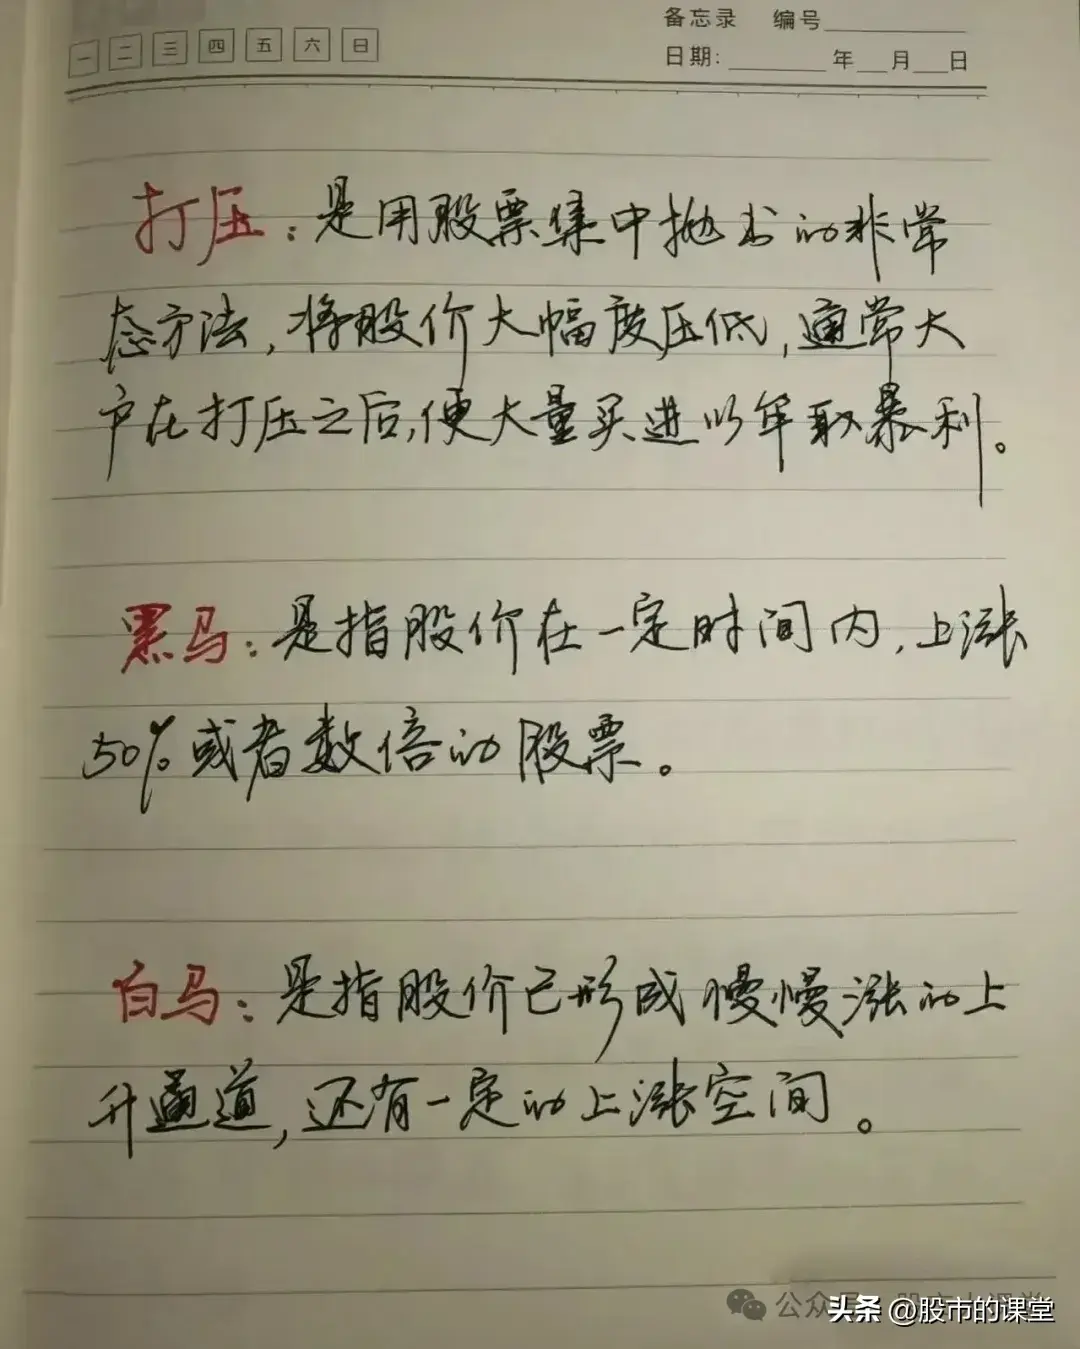 备忘录 编号
一 二 三 四 五 六 日
日期: 年 月 日
打压：是用股票集中抛出的非常
态方法，将股价大幅度压低，通常大
户在打压之后，便大量买进以牟取暴利。
黑马：是指股价在一定时间内，上涨
50%或者数倍的股票。
白马：是指股价已形成慢慢涨的上
升通道，还有一定的上涨空间。
公众
头条 @股市的课堂